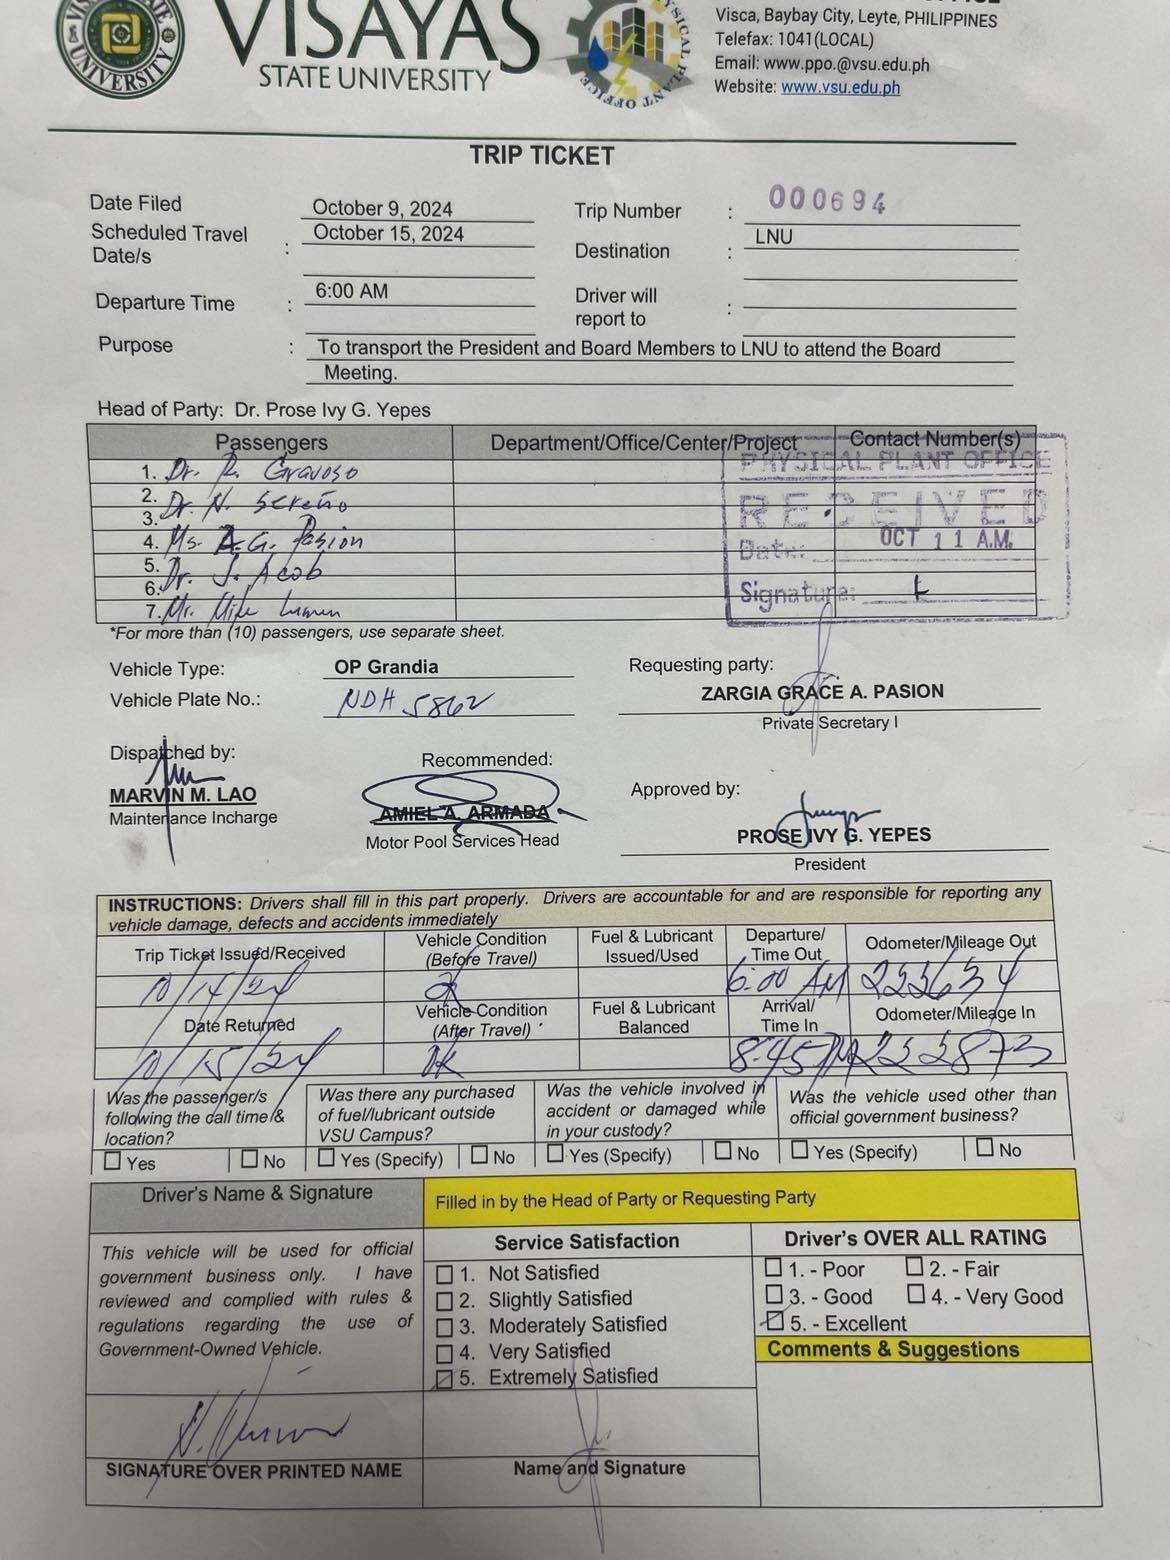 VISAYAS
STATE UNIVERSITY
Visca, Baybay City, Leyte, PHILIPPINES
Telefax: 1041(LOCAL)
Email: www.ppo.@vsu.edu.ph
Website: www.vsu.edu.ph
TRIP TICKET
Date Filed October 9, 2024 Trip Number : 000694
Scheduled Travel Date/s : October 15, 2024 Destination : LNU
Departure Time : 6:00 AM Driver will report to :
Purpose : To transport the President and Board Members to LNU to attend the Board
Meeting.
Head of Party: Dr. Prose Ivy G. Yepes
Passengers Department/Office/Center/Project Contact Number(s)
1. Dr. R. Gravoso
2. Dr. N. Sereño
3.
4. Ms. Z.G. Pasion
5. Dr. J. Acob
6.
7. Mr. Mike
PHYSICAL PLANT OFFICE
RECEIVED
Date: OCT 11 A.M.
Signature:
*For more than (10) passengers, use separate sheet.
Vehicle Type: OP Grandia Requesting party:
Vehicle Plate No.: NDH 5862 ZARGIA GRACE A. PASION
Private Secretary I
Dispatched by: Recommended: Approved by:
MARVIN M. LAO AMIEL A. ARMADA PROSE IVY G. YEPES
Maintenance Incharge Motor Pool Services Head President
INSTRUCTIONS: Drivers shall fill in this part properly. Drivers are accountable for and are responsible for reporting any
vehicle damage, defects and accidents immediately
Trip Ticket Issued/Received Vehicle Condition (Before Travel) Fuel & Lubricant Issued/Used Departure/ Time Out Odometer/Mileage Out
10/14/24 6:00 AM 222634
Date Returned Vehicle Condition (After Travel) Fuel & Lubricant Balanced Arrival/ Time In Odometer/Mileage In
10/15/24 OK 8:45 PM 222873
Was the passenger/s following the call time & location?
Was there any purchased of fuel/lubricant outside VSU Campus?
Was the vehicle involved in accident or damaged while in your custody?
Was the vehicle used other than official government business?
Yes No Yes (Specify) No Yes (Specify) No Yes (Specify) No
Driver's Name & Signature Filled in by the Head of Party or Requesting Party
This vehicle will be used for official
government business only. I have
reviewed and complied with rules &
regulations regarding the use of
Government-Owned Vehicle.
Service Satisfaction
1. Not Satisfied
2. Slightly Satisfied
3. Moderately Satisfied
4. Very Satisfied
5. Extremely Satisfied
Driver's OVER ALL RATING
1. - Poor 2. - Fair
3. - Good 4. - Very Good
5. - Excellent
Comments & Suggestions
SIGNATURE OVER PRINTED NAME Name and Signature